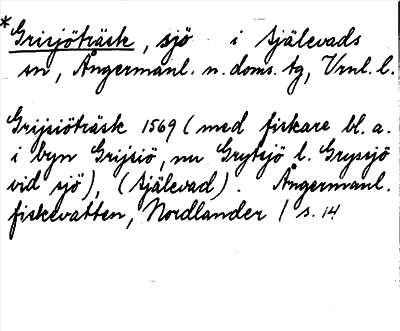 *Grisjöträsk, sjö i Själevads
sn, Ångermanl. n. doms. tg, Vrnl. l.
Grijsiöträsk 1569 (med fiskare bl. a.
i byn Grijsiö, nu Grytsjö l. Gryssjö
vid sjö), (Själevad). Ångermanl.
fiskevatten, Nordlander 1 s. 14